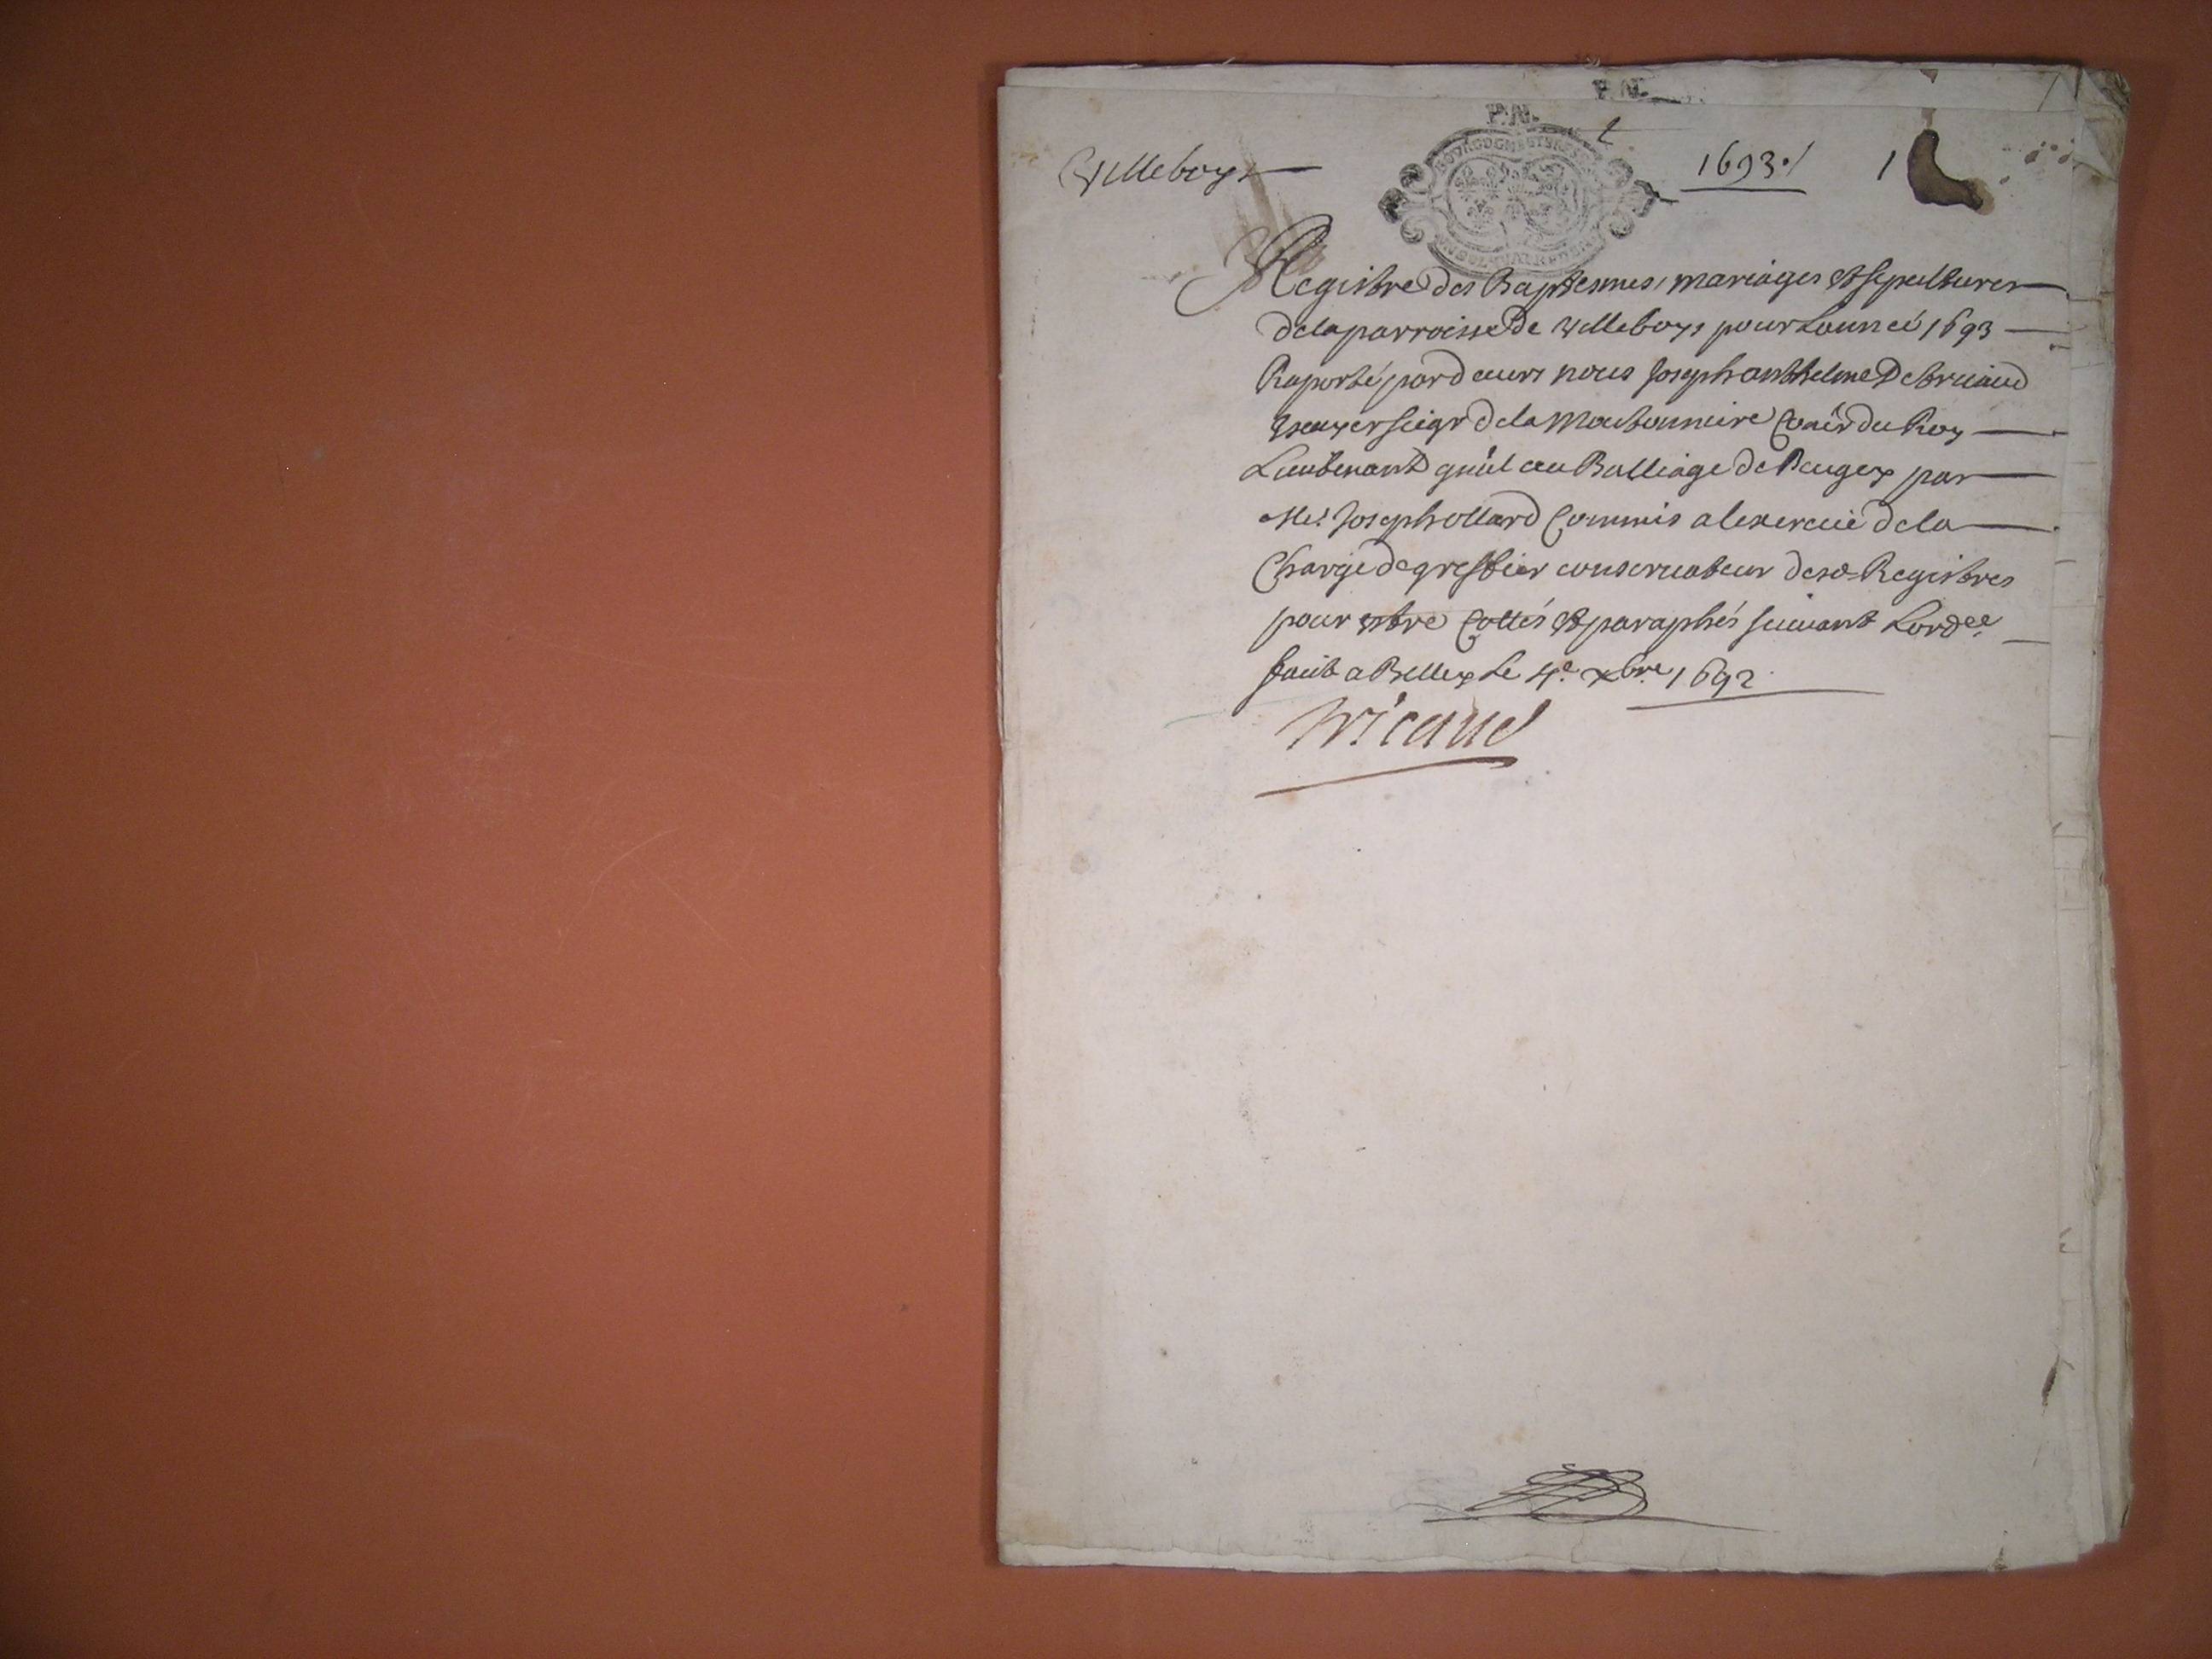 P. N.
P. N.
Villeboys 1693 1
BOURGOGNE ET BRESSE
Registre des Baptesmes, mariages et sepultures
de la parroisse de villeboys pour Lanneé 1693
Raporté par deuers nous Joseph anthelme De
escuyer seigr de la Coner du Roy
Lieutenant gnãl au Balliage de Beugey par
Me. Joseph ollard Commis a lexercice de la
Charge de greffier conseruateur desd Registres
pour estre Cottés et paraphés suiuant Lordce
faict a Belley Le 4e. xbre. 1692